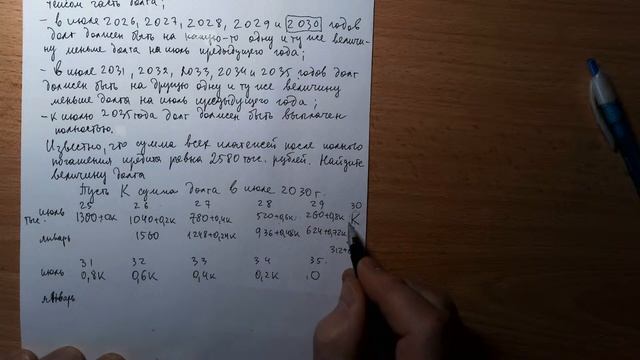 часть долга;
- в июле 2026, 2027, 2028, 2029 и 2030 годов
долг должен быть на какую-то одну и ту же величи-
ну меньше долга на июль предыдущего года;
- в июле 2031, 2032, 2033, 2034 и 2035 годов долг
должен быть на другую одну и ту же величину
меньше долга на июль предыдущего года;
- к июлю 2035 года долг должен быть выплачен
полностью.
Известно, что сумма всех платежей после полного
погашения кредита равна 2580 тыс. рублей. Найдите
величину долга
Пусть К сумма долга в июле 2030 г.
25 26 27 28 29 30
июль 1300+0к 1040+0,2к 780+0,4к 520+0,6к 260+0,8к К
тыс.
январь 1560 1248+0,24к 936+0,48к 624+0,72к
312+
31 32 33 34 35.
июль 0,8к 0,6к 0,4к 0,2к 0
январь